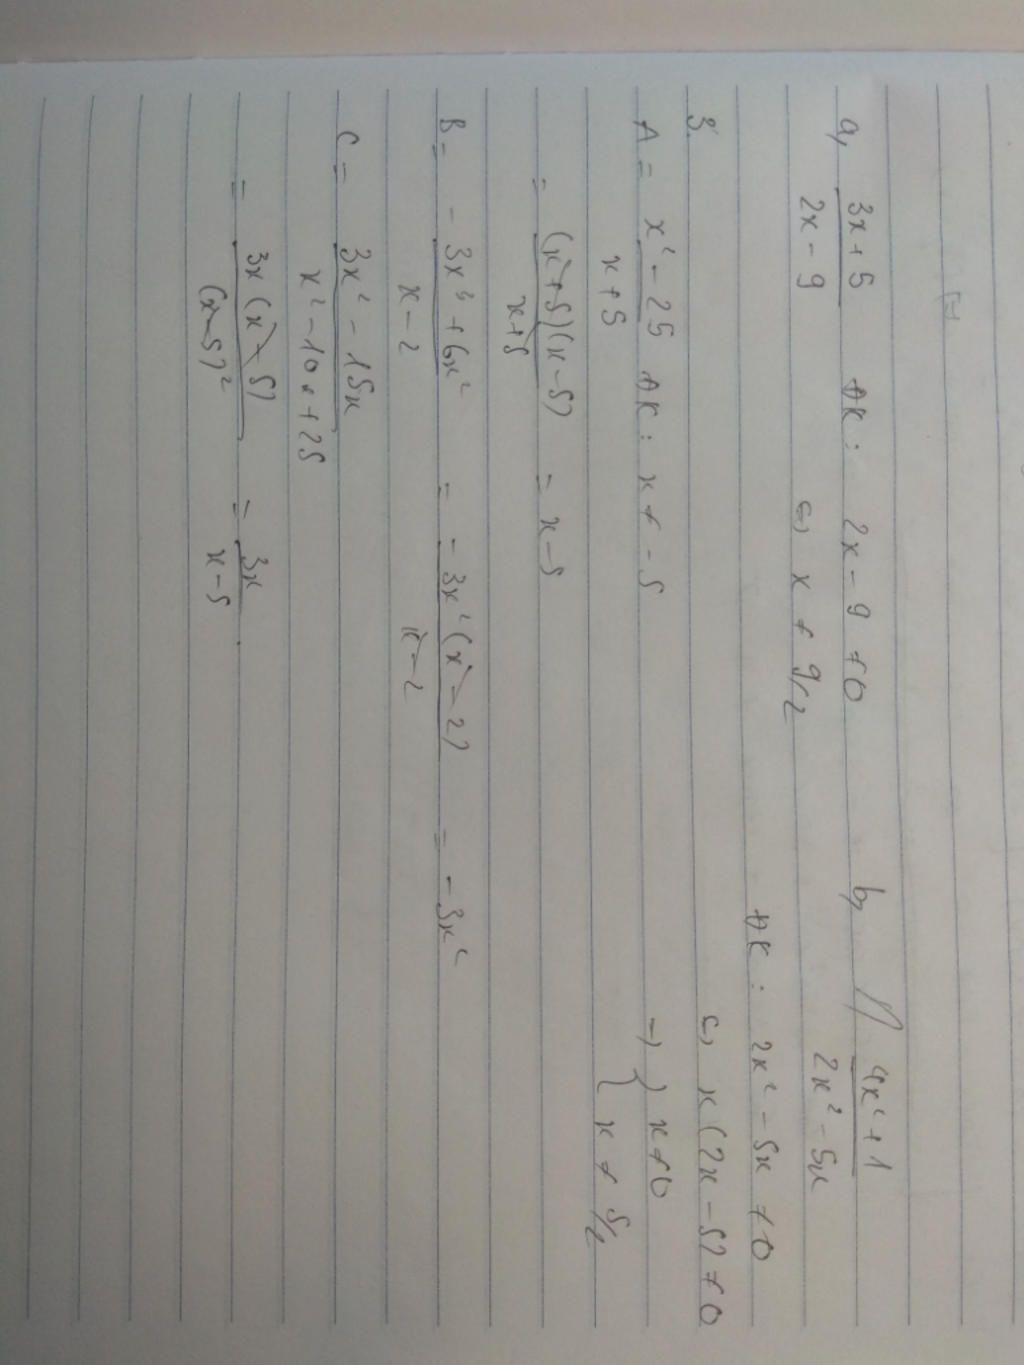 a, 3x + 5 / 2x - 9 ĐK: 2x - 9 ≠ 0
<=> x ≠ 9/2
b, 4x² + 1 / 2x² - 5x
ĐK: 2x² - 5x ≠ 0
<=> x(2x - 5) ≠ 0
=> { x ≠ 0
{ x ≠ 5/2
3.
A = x² - 25 / x + 5 ĐK: x ≠ -5
= (x + 5)(x - 5) / x + 5 = x - 5
B = - 3x³ + 6x² / x - 2 = - 3x²(x - 2) / x - 2 = - 3x²
C = 3x² - 15x / x² - 10x + 25
= 3x(x - 5) / (x - 5)² = 3x / x - 5 .